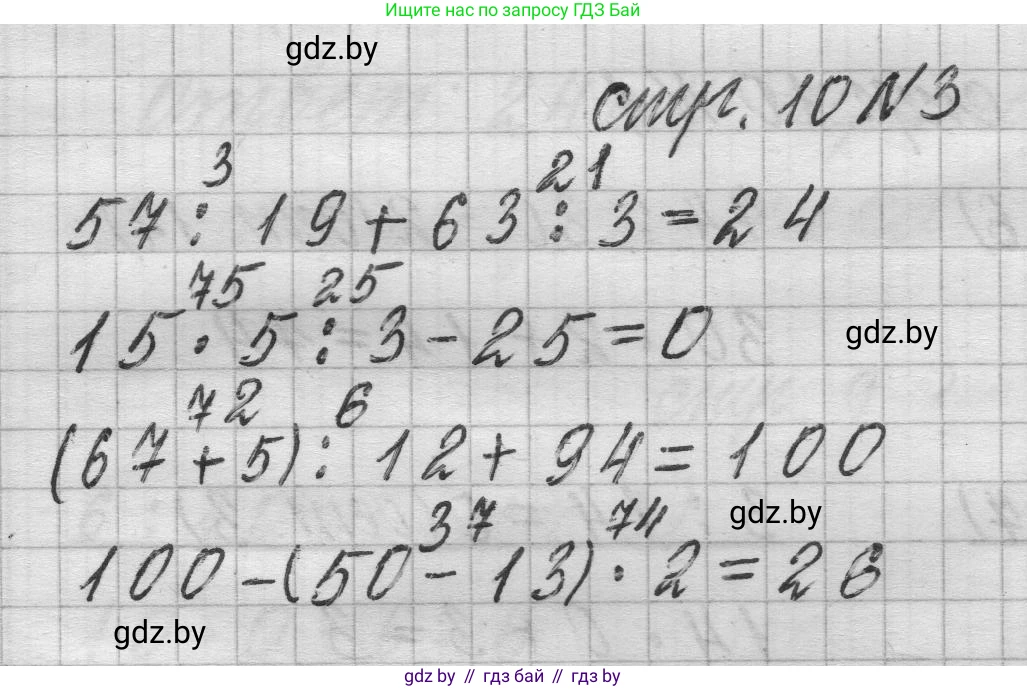 Ищите нас по запросу ГДЗ Бай
gdz.by
стр. 10 N 3
3 21
57 : 19 + 63 : 3 = 24
75 25
15 · 5 : 3 - 25 = 0
gdz.by
72 6
(67 + 5) : 12 + 94 = 100
gdz.by
37 74
100 - (50 - 13) · 2 = 26
gdz.by
gdz by // гдз бай // gdz by